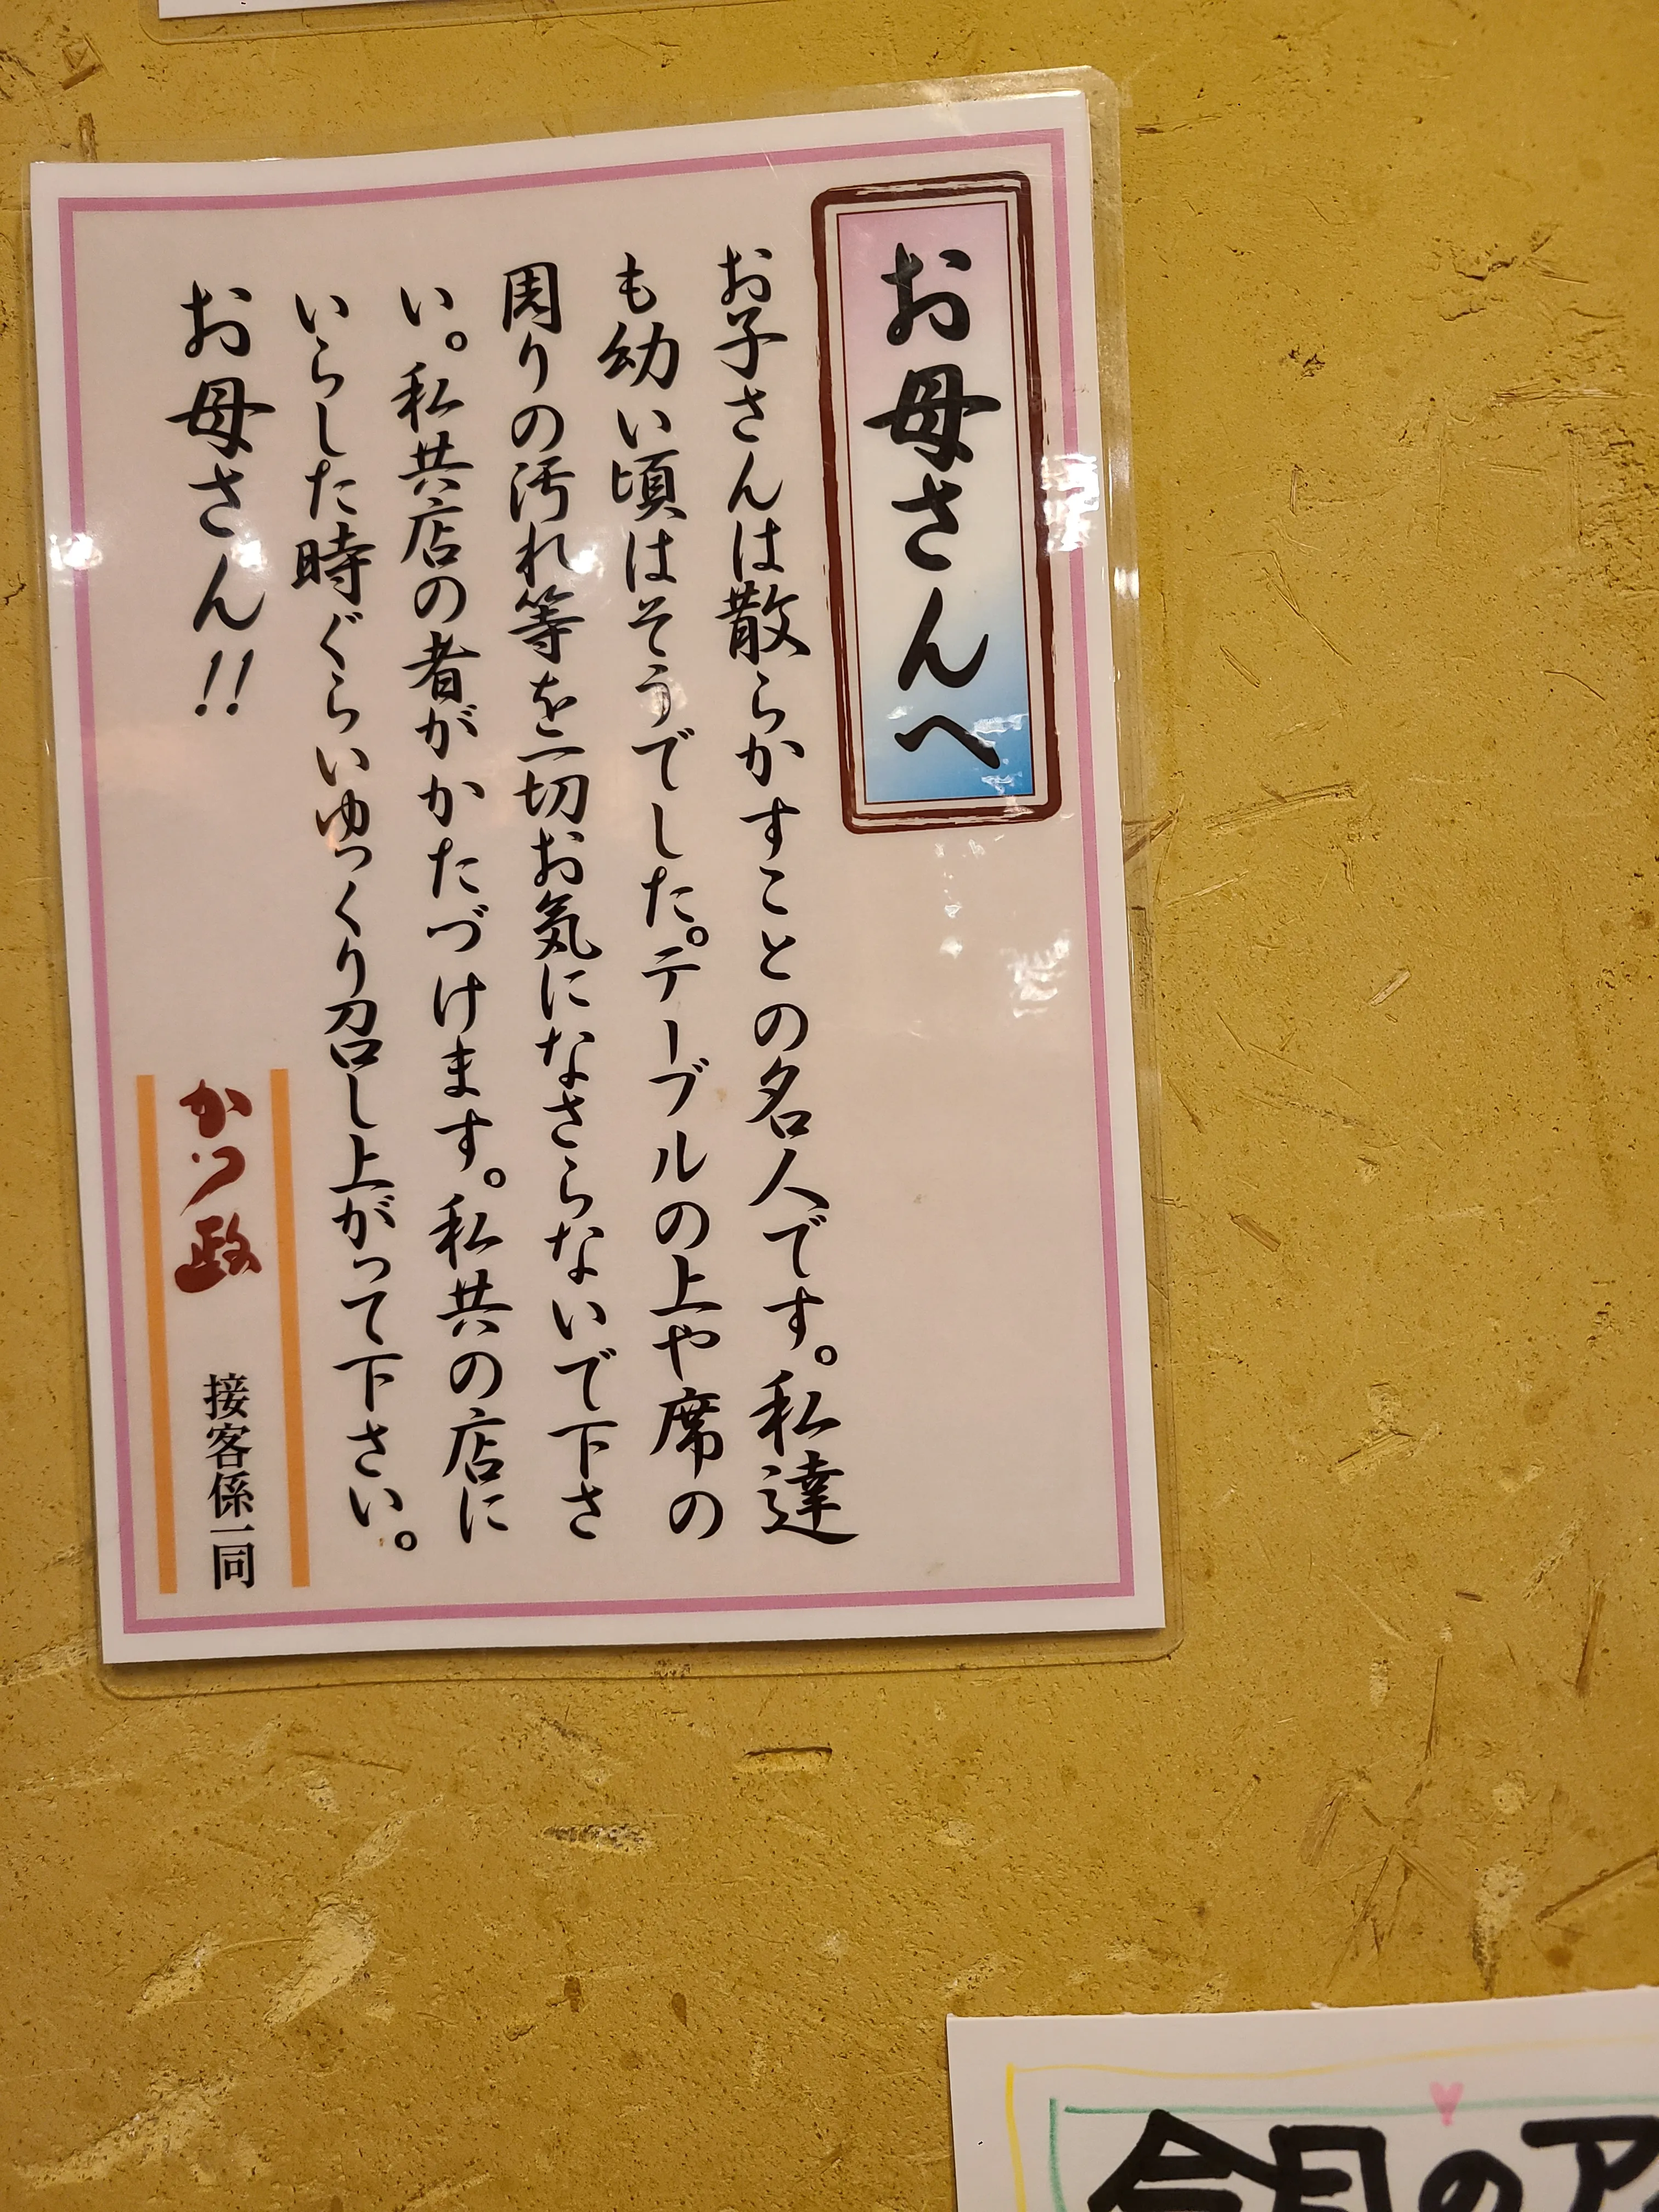 お母さんへ
お子さんは散らかすことの名人です。私達
も幼い頃はそうでした。テーブルの上や席の
周りの汚れ等を一切お気になさらないで下さ
い。私共店の者がかたづけます。私共の店に
いらした時ぐらいゆっくり召し上がって下さい。
お母さん!!
かつ政
接客係一同
今月のア